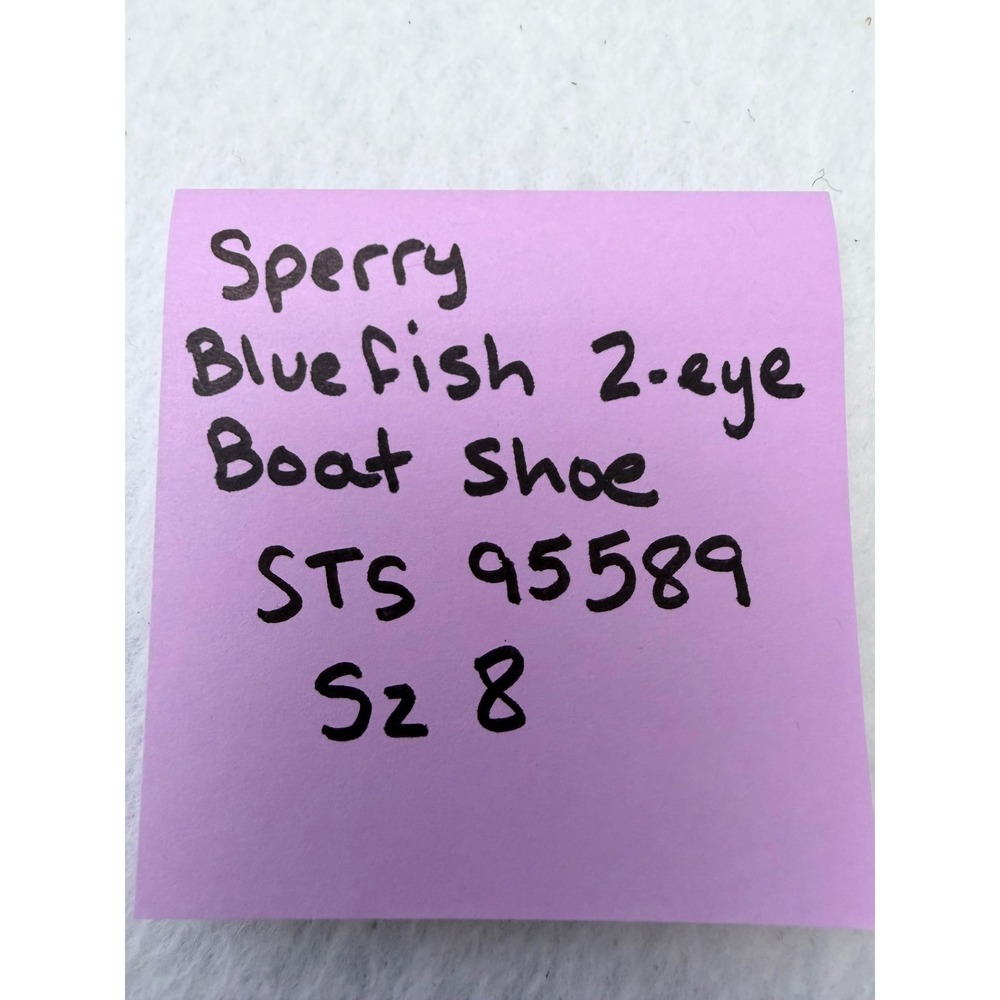 Sperry
Bluefish 2-eye
Boat Shoe
STS 95589
Sz 8